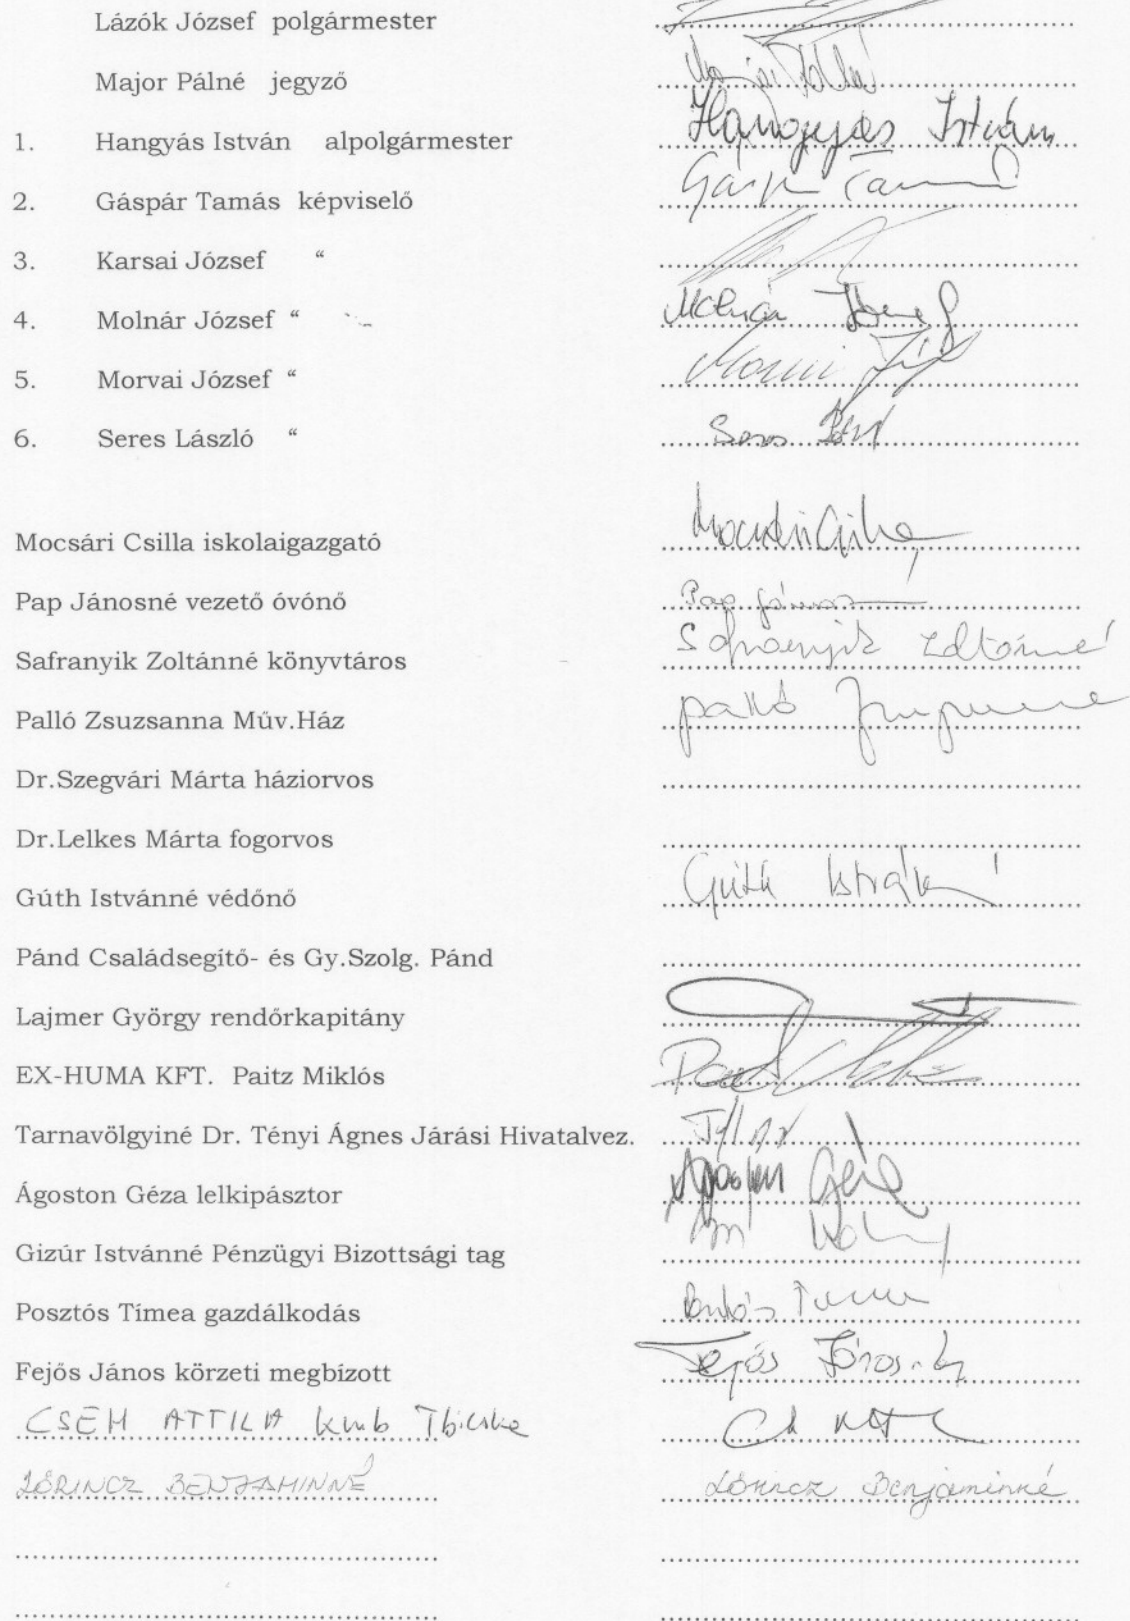 Lázók József polgármester
Major Pálné jegyző
1. Hangyás István alpolgármester Hangyás István
2. Gáspár Tamás képviselő
3. Karsai József “
4. Molnár József “ Molnár József
5. Morvai József “ Morvai
6. Seres László “ Seres
Mocsári Csilla iskolaigazgató Mocsári Csilla
Pap Jánosné vezető óvónő Pap Jánosné
Safranyik Zoltánné könyvtáros Safranyik Zoltánné
Palló Zsuzsanna Műv.Ház Palló Zsuzsanna
Dr.Szegvári Márta háziorvos
Dr.Lelkes Márta fogorvos
Gúth Istvánné védőnő Gúth Istvánné
Pánd Családsegítő- és Gy.Szolg. Pánd
Lajmer György rendőrkapitány
EX-HUMA KFT. Paitz Miklós
Tarnavölgyiné Dr. Tényi Ágnes Járási Hivatalvez.
Ágoston Géza lelkipásztor Ágoston Géza
Gizúr Istvánné Pénzügyi Bizottsági tag
Posztós Tímea gazdálkodás
Fejős János körzeti megbízott Fejős János
CSEH ATTILA kmb Tbicske
LŐRINCZ BENJAMINNÉ Lőrincz Benjaminné